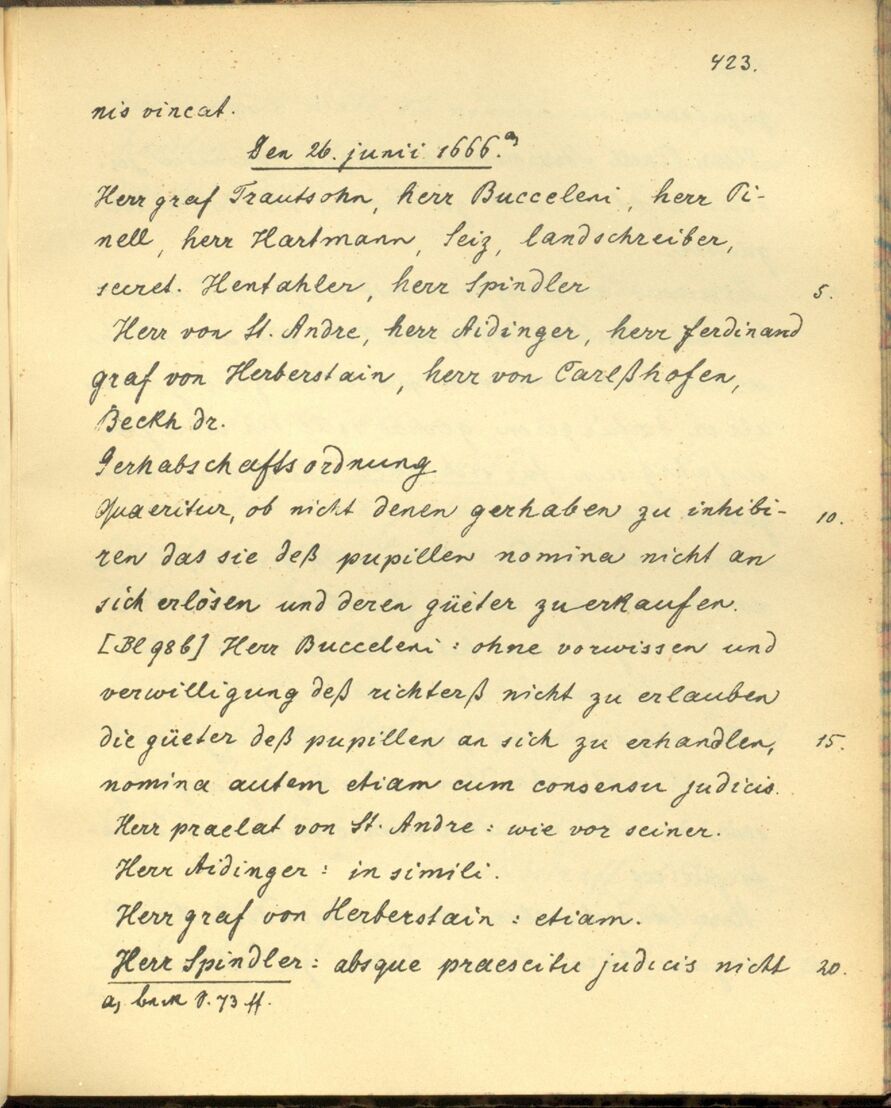 423.
nis vincat.
Den 26. junii 1666. a)
Herr graf Trautsohn, herr Bucceleni, herr Ti-
nell, herr Hartmann, Seiz, landschreiber,
secret. Hentahler, herr Spindler 5.
Herr von St. Andre, herr Aidinger, herr ferdinand
graf von Herberstain, herr von Carelßhofen,
Beckh dr.
Gerhabschaftsordnung
Quaeritur, ob nicht denen gerhaben zu inhibi- 10.
ren das sie deß pupillen nomina nicht an
sich erlösen und deren güeter zu erkaufen.
[Bl 98b] Herr Bucceleni: ohne vorwissen und
verwilligung deß richterß nicht zu erlauben
die güeter deß pupillen an sich zu erhandlen, 15.
nomina autem etiam cum consensu judicis.
Herr praelat von St. Andre: wie vor seiner.
Herr Aidinger: in simili.
Herr graf von Herberstain: etiam.
Herr Spindler: absque praescitu judicis nicht 20.
a) 73 ff.